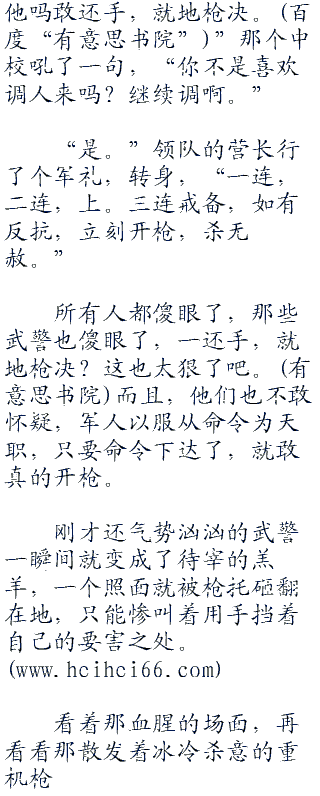 他吗敢还手，就地枪决。(百
度“有意思书院”)”那个中
校吼了一句，“你不是喜欢
调人来吗？继续调啊。”
“是。”领队的营长行
了个军礼，转身，“一连，
二连，上。三连戒备，如有
反抗，立刻开枪，杀无
赦。”
所有人都傻眼了，那些
武警也傻眼了，一还手，就
地枪决？这也太狠了吧。(有
意思书院)而且，他们也不敢
怀疑，军人以服从命令为天
职，只要命令下达了，就敢
真的开枪。
刚才还气势汹汹的武警
一瞬间就变成了待宰的羔
羊，一个照面就被枪托砸翻
在地，只能惨叫着用手挡着
自己的要害之处。
(www.hcihci66.com)
看着那血腥的场面，再
看看那散发着冰冷杀意的重
机枪